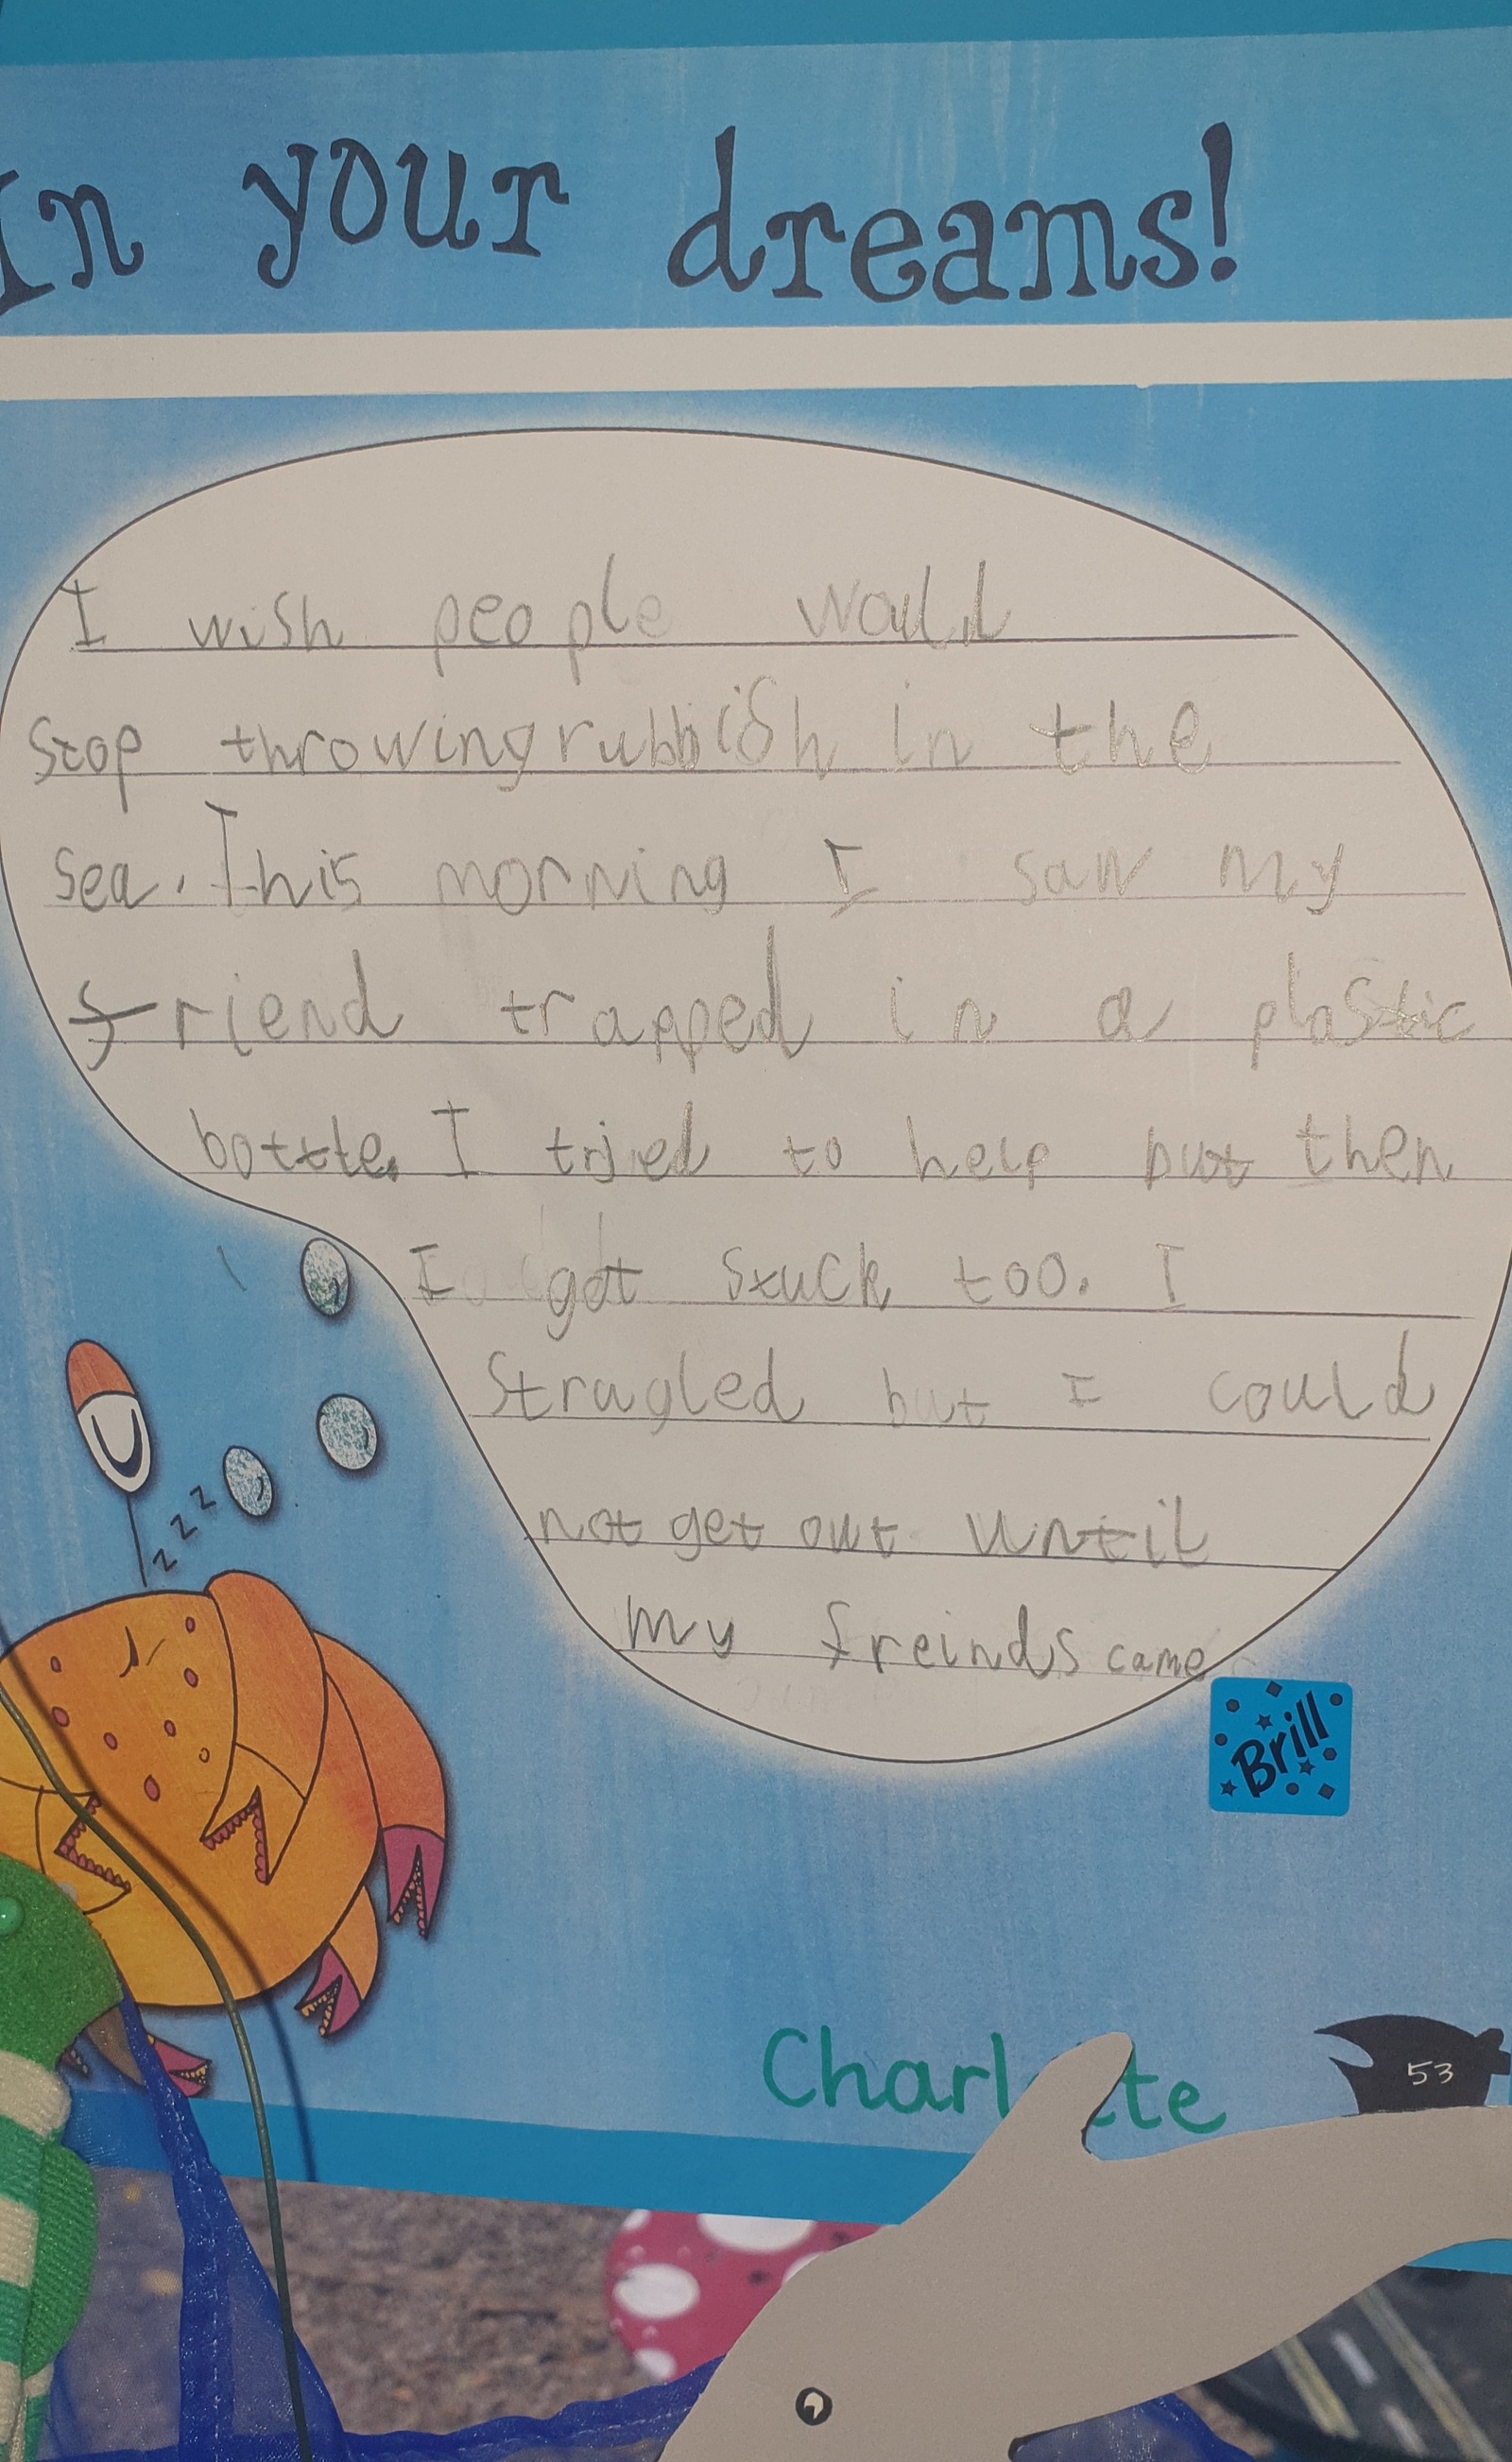 In your dreams!
I wish people would
stop throwing rubbish in the
sea. This morning I saw my
friend trapped in a plastic
bottle. I tried to help but then
I got stuck too. I
Strugled but I could
not get out until
my freinds came
Brill
zzz
53